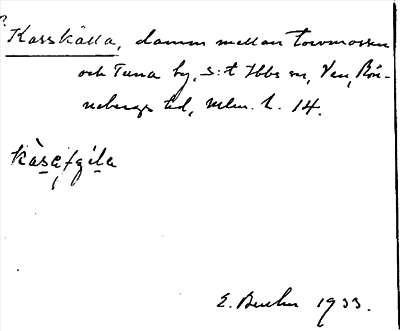 ?
Kasskälla, damm mellan torvmossen
och Tuna by, S:t Ibbs sn, Ven, Rön-
nebergs hd, Mlm. l. 14.
kàsaʃɟila
E. 1933.